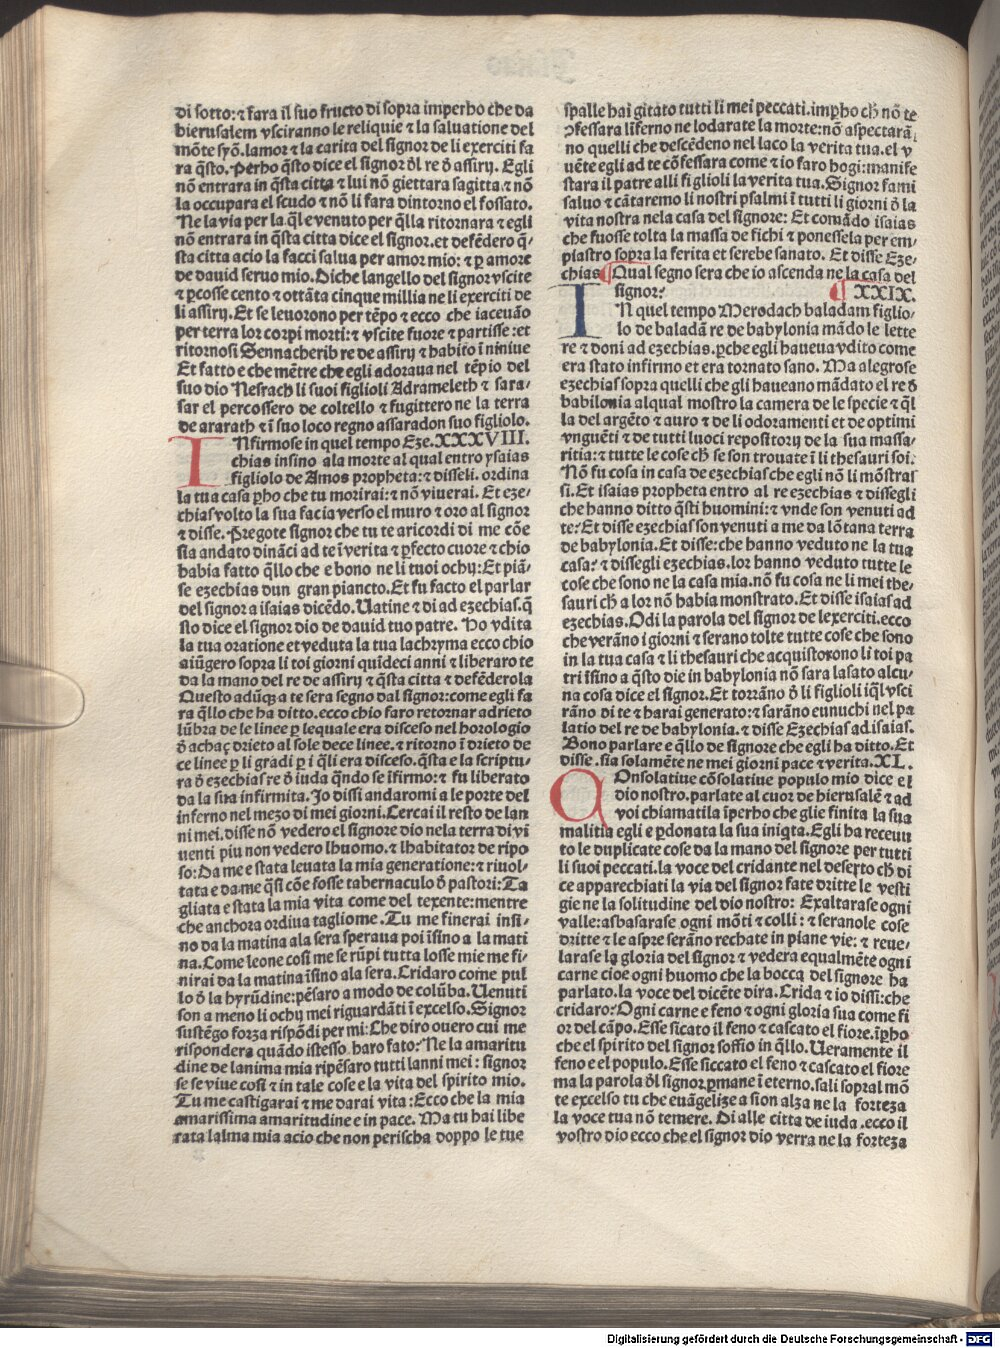 di sotto: ⁊ fara il suo fructo di sopra imperho che da
hierusalem vsciranno le reliquie ⁊ la saluatione del
mōte syō. lamor ⁊ la carita del signor de li exerciti fa
ra q̄sto. Perho q̄sto dice el signor ðl re ð assiry. Egli
nō entrara in q̄sta citta ⁊ lui nō giettara sagitta ⁊ nō
la occupara el scudo ⁊ nō li fara dintorno el fossato.
Ne la via per la .q̄l e venuto per q̄lla ritornara ⁊ egli
nō entrara in q̄sta citta dice el signor. et defēdero q̄-
sta citta acio la facci salua per amor mio: ⁊ ꝑ amore
de dauid seruo mio. Diche langello del signor vscite
⁊ ꝑcosse cento ⁊ ottāta cinque millia ne li exerciti de
li assiry. Et se leuorono per tēpo ⁊ ecco che iaceuāo
per terra lor corpi morti: ⁊ vscite fuore ⁊ partisse: et
ritornosi Sennacherib re de assiry ⁊ habito ī niniue
Et fatto e che mētre che egli adoraua nel tēpio del
suo dio Nesrach li suoi figlioli Adrameleth ⁊ sara-
sar el percossero de coltello ⁊ fugittero ne la terra
de ararath ⁊ ī suo loco regno assaradon suo figliolo.
INfirmose in quel tempo Eze. XXXVIII.
chias insino ala morte al qual entro ysaias
figliolo de Amos propheta: ⁊ disseli. ordina
la tua casa ꝑho che tu morirai: ⁊ nō viuerai. Et eze-
chias volto la sua facia verso el muro ⁊ oro al signor
⁊ disse. Pregote signor che tu te aricordi di me cōe
sia andato dināci ad te ī verita ⁊ ꝑfecto cuore ⁊ chio
habia fatto q̄llo che e bono ne li tuoi ochy: Et piā-
se ezechias dun gran piancto. Et fu facto el parlar
del signor a isaias dicēdo. Uatine ⁊ di ad ezechias. q̄
sto dice el signor dio de dauid tuo patre. Ho vdita
la tua oratione et veduta la tua lachryma ecco chio
aiūgero sopra li toi giorni quīdeci anni ⁊ liberaro te
da la mano del re de assiry ⁊ q̄sta citta ⁊ defēderola
Questo adūq̄ a te sera segno dal signor: come egli fa
ra q̄llo che ha ditto. ecco chio faro retornar adrieto
lūbra de le linee ꝑ lequale era disceso nel horologio
ð achaç drieto al sole dece linee. ⁊ ritorno ī drieto de
ce linee ꝑ li gradi ꝑ i q̄li era disceso. q̄sta e la scriptu-
ra ð ezechias re ð iuda q̄ndo se īfirmo: ⁊ fu liberato
da la sua infirmita. Jo dissi andaromi a le porte del
inferno nel mezo di mei giorni. Cercai il resto de lan
ni mei. disse nō vedero el signore dio nela terra di vi
uenti piu non vedero lhuomo. ⁊ lhabitator de ripo
so: Da me e stata leuata la mia generatione: ⁊ riuol-
tata e da me q̄si cōe fosse tabernaculo ð pastori: Ta
gliata e stata la mia vita come del texente: mentre
che anchora ordiua tagliome. Tu me finerai insi-
no da la matina ala sera speraua poi īsino a la mati
na. Come leone cosi me se rūpi tutta losse mie me fi-
nirai da la matina īsino ala sera. Cridaro come pul
lo ð la hyrūdine: pēsaro a modo de colūba. Uenuti
son a meno li ochy mei riguardāti ī excelso. Signor
sustēgo forza rispōdi per mi: Che diro ouero cui me
rispondera quādo istesso haro fato: Ne la amaritu
dine de lanima mia ripēsaro tutti lanni mei: signor
se se viue cosi ⁊ in tale cose e la vita del spirito mio.
Tu me castigarai ⁊ me darai vita: Ecco che la mia
amarissima amaritudine e in pace. Ma tu hai libe
rata lalma mia acio che non perischa doppo le tue
spalle hai gitato tutti li mei peccati. imꝑho ch̄ nō te
ↄfessara līferno ne lodarate la morte: nō aspectarā
no quelli che descēdeno nel laco la verita tua. el v
uēte egli ad te cōfessara come ⁊ io faro hogi: manife
stara il patre alli figlioli la verita tua. Signor fami
saluo ⁊ cātaremo li nostri psalmi ī tutti li giorni ð la
vita nostra nela casa del signore: Et comādo isaias
che fuosse tolta la massa de fichi ⁊ ponessela per em-
piastro sopra la ferita et serebe sanato. Et disse Eze-
chias Qual segno sera che io ascenda ne la casa del
signor? XXIX.
IN quel tempo Merodach baladam figlio-
lo de baladā re de babylonia mādo le lette
re ⁊ doni ad ezechias. ꝑche egli haueua vdito come
era stato infirmo et era tornato sano. Ma alegrose
ezechias sopra quelli che gli haueano mādato el re ð
babilonia alqual mostro la camera de le specie ⁊ q̄l
la del argēto ⁊ auro ⁊ de li odoramenti et de optimi
vnguēti ⁊ de tutti luoci repository de la sua massa-
ritia: ⁊ tutte le cose ch̄ se son trouate ī li thesauri soi.
Nō fu cosa in casa de ezechias che egli nō li mōstras
si. Et isaias propheta entro al re ezechias ⁊ dissegli
che hanno ditto q̄sti huomini: ⁊ vnde son venuti ad
te: Et disse ezechias son venuti a me da lōtana terra
de babylonia. Et disse: che hanno veduto ne la tua
casa: ⁊ dissegli ezechias. lor hanno veduto tutte le
cose che sono ne la casa mia. nō fu cosa ne li mei the-
sauri ch̄ a lor nō habia monstrato. Et disse isaias ad
ezechias. Odi la parola del signor de lexerciti. ecco
che verāno i giorni ⁊ serano tolte tutte cose che sono
in la tua casa ⁊ li thesauri che acquistorono li toi pa
tri īsino a q̄sto die in babylonia nō sara lasato alcu-
na cosa dice el signor. Et torrāno ð li figlioli iq̄l vsci
rāno di te ⁊ harai generato: ⁊ sarāno eunuchi nel pa
latio del re de babylonia. ⁊ disse Ezechias ad isaias.
Bono parlare e q̄llo de signore che egli ha ditto. Et
disse. sia solamēte ne mei giorni pace ⁊ verita. XL.
COnsolatiue cōsolatiue populo mio dice el
dio nostro. parlate al cuor de hierusalē ⁊ ad
voi chiamatila īperho che glie finita la sua
malitia egli e ꝑdonata la sua iniq̄ta. Egli ha receuu
to le duplicate cose da la mano del signore per tutti
li suoi peccati. la voce del cridante nel deserto ch̄ di
ce apparechiati la via del signor fate dritte le vesti
gie ne la solitudine del dio nostro: Exaltarase ogni
valle: asbasarase ogni mōti ⁊ colli: ⁊ seranole cose
dritte ⁊ le aspre serāno rechate in piane vie: ⁊ reue-
larase la gloria del signor ⁊ vedera equalmēte ogni
carne cioe ogni huomo che la bocca del signore ha
parlato. la voce del dicēte dira. Crida ⁊ io dissi: che
cridaro: Ogni carne e feno ⁊ ogni gloria sua come fi
or del cāpo. Esse sicato il feno ⁊ cascato el fiore. īꝑho
che el spirito del signor soffio in q̄llo. Ueramente il
feno e el populo. Esse siccato el feno ⁊ cascato el fiore
ma la parola ðl signor ꝑmane ī eterno. sali sopral mō
te excelso tu che euāgelize a sion alza ne la forteza
la voce tua nō temere. Di alle citta de iuda. ecco il
vostro dio ecco che el signor dio verra ne la forteza
Digitalisierung gefördert durch die Deutsche Forschungsgemeinschaft - DFG